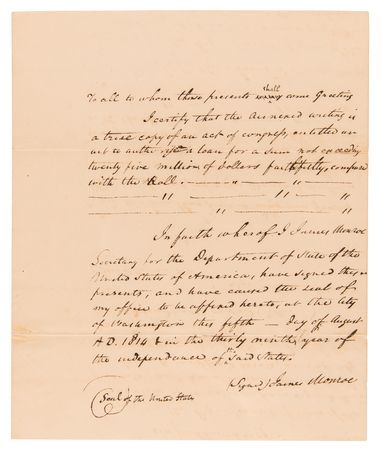 To all to whom these presents shall come Greeting
I certify that the annexed writing is
a true copy of an act of congress, entitled an
act to authorise a loan for a sum not exceeding
twenty five million of dollars faithfully, compared
with the Roll. — " — " —
— " — " — "
" " "
In faith whereof I James Monroe
Secretary for the Department of State of the
United States of America, have signed these
presents, and have caused the seal of
my office to be affixed hereto, at the City
of Washington this fifth — day of August
A.D. 1814 & in the thirty ninth year of
the independence of said States.
(Signed) James Monroe
Seal of the United States